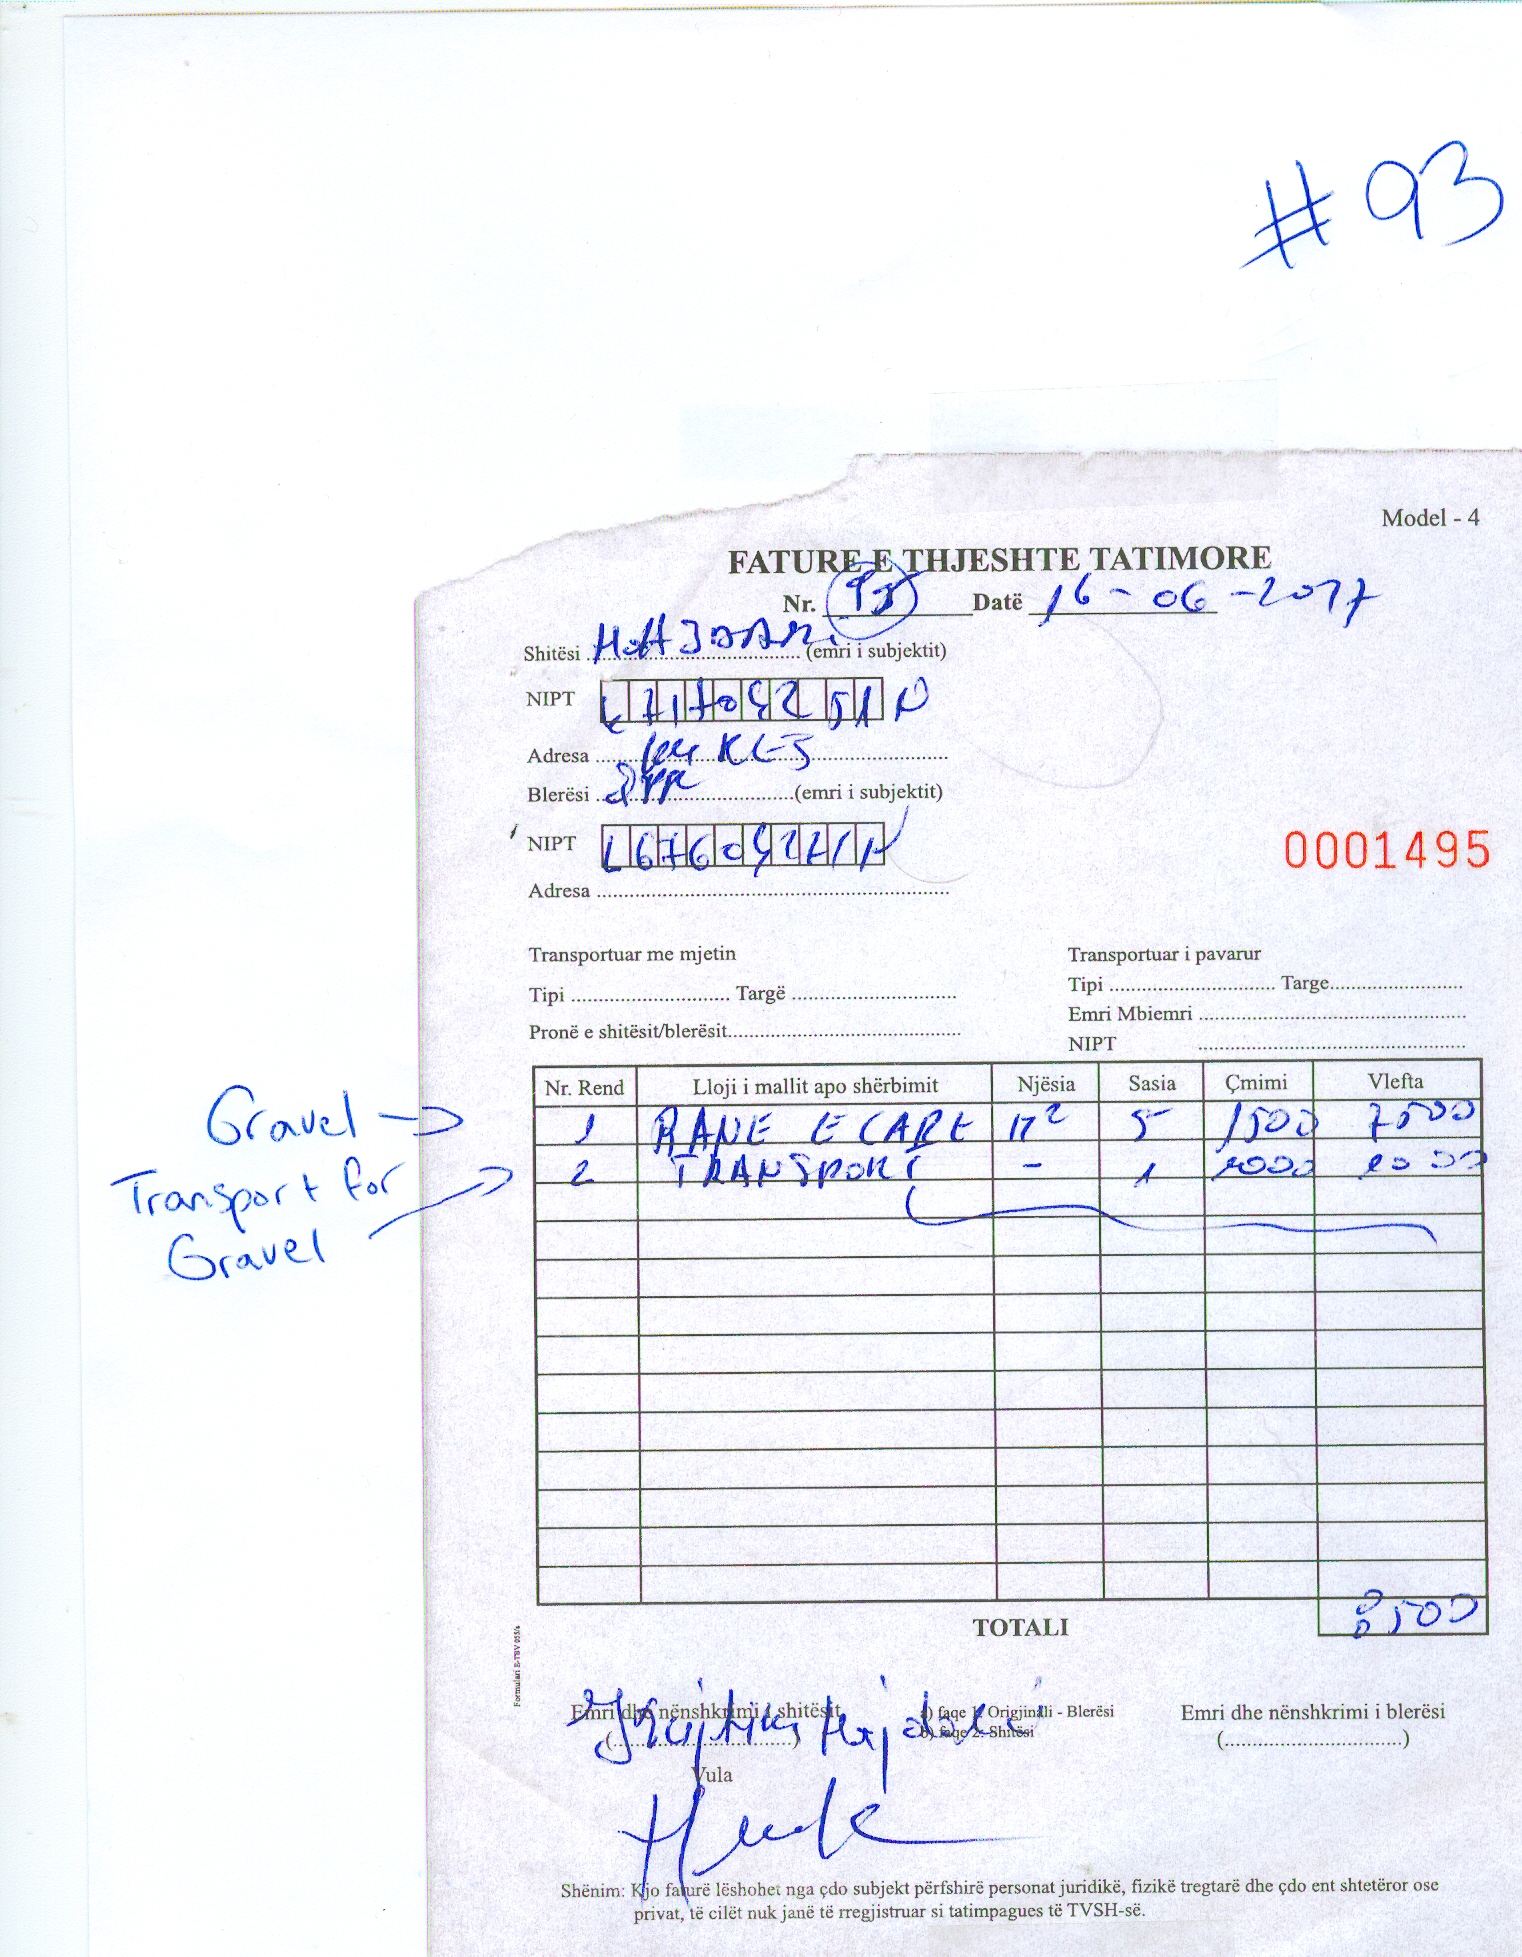 #93
Model - 4
FATURE E THJESHTE TATIMORE
Nr. 93 Datë 16-06-2017
Shitësi HAJDARI (emri i subjektit)
NIPT
Adresa
Blerësi (emri i subjektit)
NIPT
0001495
Adresa
Transportuar me mjetin
Transportuar i pavarur
Tipi Targë
Tipi Targe
Emri Mbiemri
Pronë e shitësit/blerësit
NIPT
Nr. Rend Lloji i mallit apo shërbimit Njësia Sasia Çmimi Vlefta
Gravel → 1 RANE E LARE M2 5 1500 7500
Transport for Gravel → 2 TRANSPORT - 1 1000 1000
TOTALI 8500
Formulari E-TSV 055/a
Emri dhe nënshkrimi i shitësit
a) faqe 1. Origjinali - Blerësi
b) faqe 2. Shitësi
Emri dhe nënshkrimi i blerësit
(..............................)
(..............................)
Hajdari
Vula
Shënim: Kjo faturë lëshohet nga çdo subjekt përfshirë personat juridikë, fizikë tregtarë dhe çdo ent shtetëror ose
privat, të cilët nuk janë të rregjistruar si tatimpagues të TVSH-së.